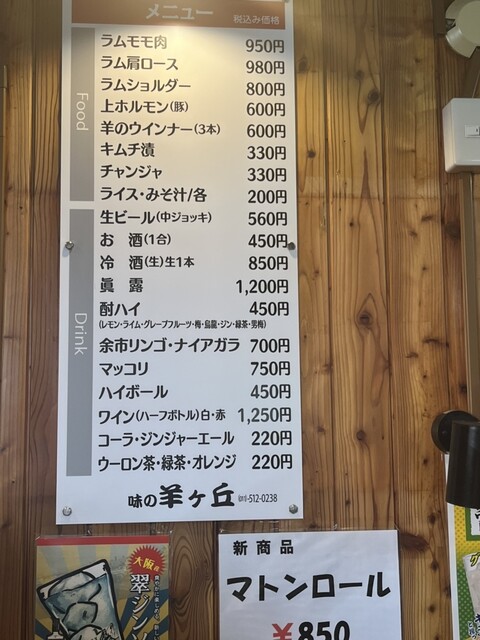 メニュー 税込み価格
Food
ラムモモ肉 950円
ラム肩ロース 980円
ラムショルダー 800円
上ホルモン(豚) 600円
羊のウインナー(3本) 600円
キムチ漬 330円
チャンジャ 330円
ライス・みそ汁/各 200円
Drink
生ビール(中ジョッキ) 560円
お酒(1合) 450円
冷酒(生)生1本 850円
眞露 1,200円
酎ハイ 450円
(レモン・ライム・グレープフルーツ・梅・烏龍・ジン・緑茶・男梅)
余市リンゴ・ナイアガラ 700円
マッコリ 750円
ハイボール 450円
ワイン(ハーフボトル)白・赤 1,250円
コーラ・ジンジャーエール 220円
ウーロン茶・緑茶・オレンジ 220円
味の羊ヶ丘 (011)-512-0238
大阪
翠ジン
新商品
マトンロール
¥850